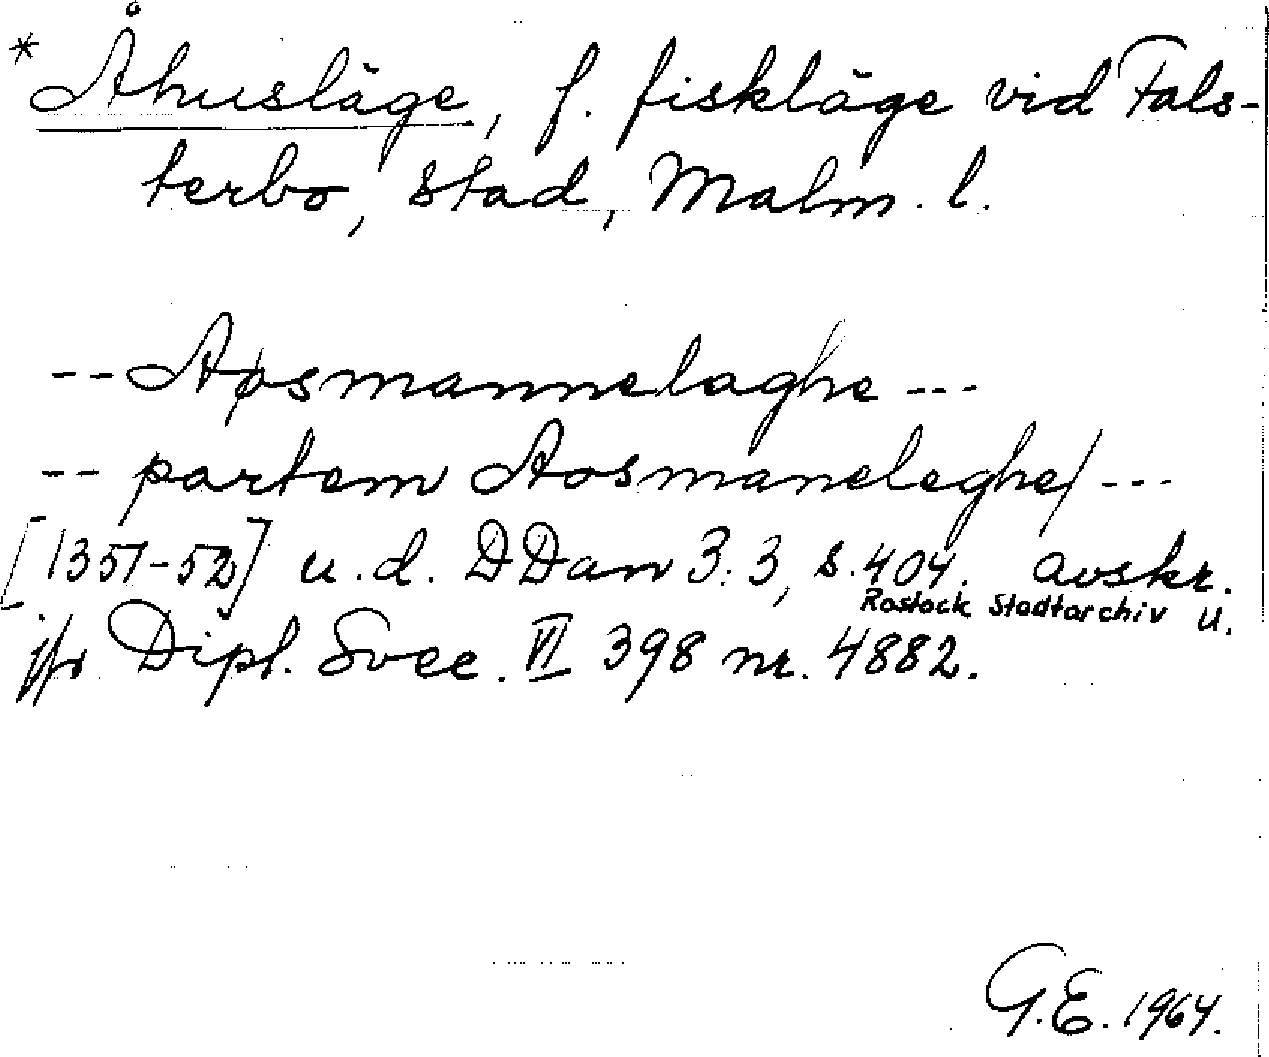 * Åhusläge, f. fiskläge vid Fals-
terbo, stad, Malm. l.
-- Aosmannelaghe ---
-- partem Aosmaneleghe/ ---
[1351-52] u.d. DDan 3:3, s.404. avskr.
Rostock Stadtarchiv u.
jfr Dipl. Svec. VI 398 nr. 4882.
G.E. 1964.